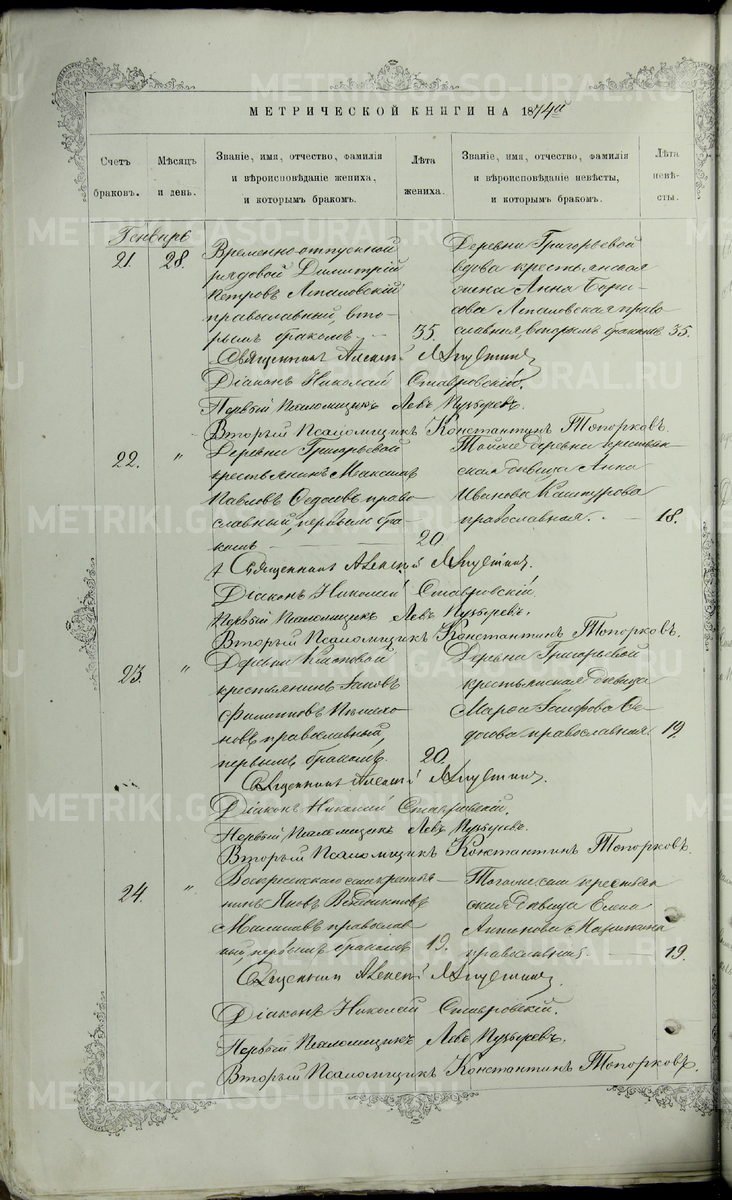 МЕТРИЧЕСКОЙ КНИГИ НА 1874й
Счетъ браковъ.
Мѣсяцъ и день.
Званіе, имя, отчество, фамилія
и вѣроисповѣданіе жениха,
и которымъ бракомъ.
Лѣта жениха.
Званіе, имя, отчество, фамилія
и вѣроисповѣданіе невѣсты,
и которымъ бракомъ.
Лѣта невѣ-
сты.
Генварь
21. 28.
Временно-отпускной
рядовой Димитрій
Петровъ
православный, вто-
рымъ бракомъ 35.
Деревни Григорьевой
вдова крестьянская
жена Анна Бори-
сова право-
славная, вторымъ бракомъ 35.
Священникъ Алексій
Діаконъ Николай Ставровскій.
Первый Псаломщикъ Левъ Пузыревъ.
Второй Псаломщикъ Константинъ Топорковъ.
22. "
Деревни Григорьевой
крестьянинъ Максимъ
Павловъ Ѳедосовъ право-
славный, первымъ бра-
комъ 20
Тойже деревни крестьян-
ская дѣвица Анна
Иванова
православная. 18.
Священникъ Алексій
Діаконъ Николай Ставровскій.
Первый Псаломщикъ Левъ Пузыревъ.
Второй Псаломщикъ Константинъ Топорковъ.
23. "
Деревни
крестьянинъ Іаковъ
Филипповъ
православный,
первымъ бракомъ. 20.
Деревни Григорьевой
крестьянская дѣвица
Марѳа Ѳе-
досова православная 19.
Священникъ Алексій
Діаконъ Николай Ставровскій.
Первый Псаломщикъ Левъ Пузыревъ.
Второй Псаломщикъ Константинъ Топорковъ.
24. "
Воскресенскаго села крестья-
нинъ
православ-
ный, первымъ бракомъ 19.
Тогоже села крестьян-
ская дѣвица Елена
православная 19.
Священникъ Алексій
Діаконъ Николай Ставровскій.
Первый Псаломщикъ Левъ Пузыревъ.
Второй Псаломщикъ Константинъ Топорковъ.
METRIKI.GASO-URAL.RU